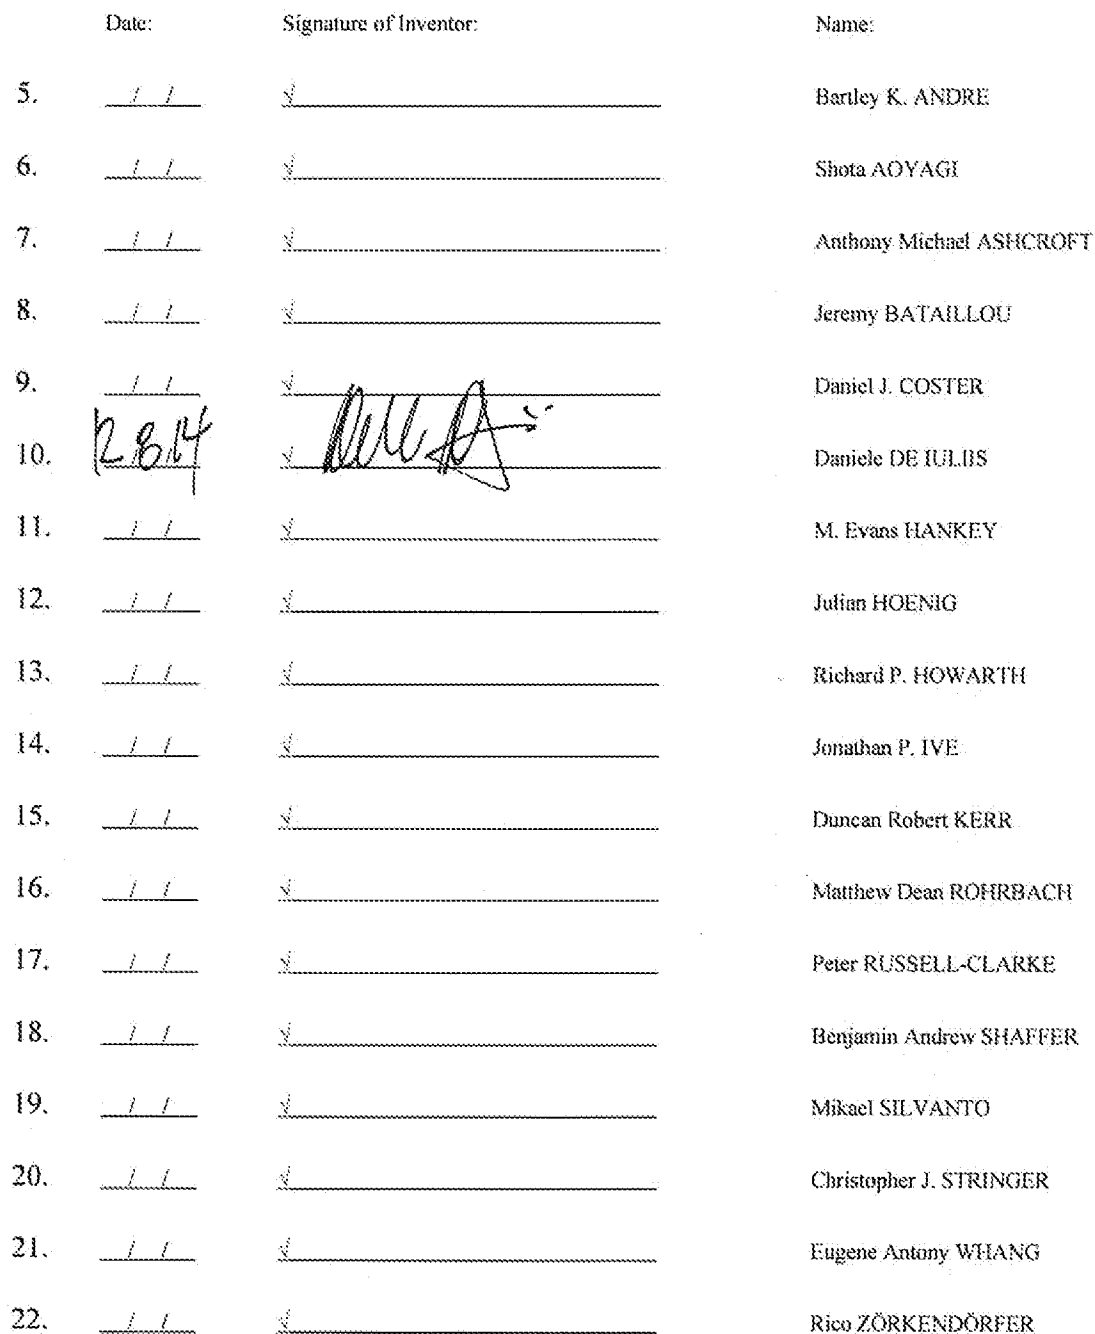 Date: Signature of Inventor: Name:
5. / / √ Bartley K. ANDRE
6. / / √ Shota AOYAGI
7. / / √ Anthony Michael ASHCROFT
8. / / √ Jeremy BATAILLOU
9. / / √ Daniel J. COSTER
10. 12/8/14 √ Daniele DE IULIIS
11. / / √ M. Evans HANKEY
12. / / √ Julian HOENIG
13. / / √ Richard P. HOWARTH
14. / / √ Jonathan P. IVE
15. / / √ Duncan Robert KERR
16. / / √ Matthew Dean ROHRBACH
17. / / √ Peter RUSSELL-CLARKE
18. / / √ Benjamin Andrew SHAFFER
19. / / √ Mikael SILVANTO
20. / / √ Christopher J. STRINGER
21. / / √ Eugene Antony WHANG
22. / / √ Rico ZÖRKENDÖRFER